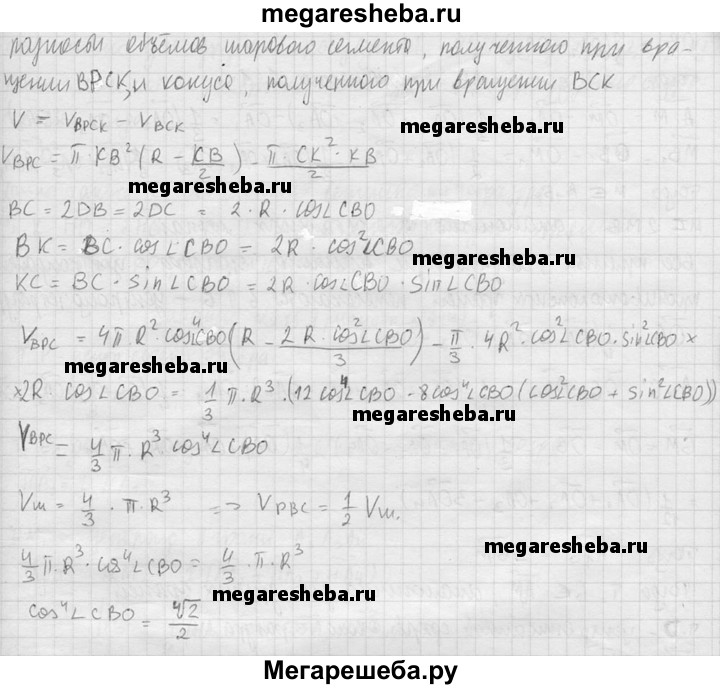 megaresheba.ru
разносы объёмов шарового сегмента, полученного при вра-
щении BPCK, и конуса, полученного при вращении BCK
V = V_BPCK - V_BCK
megaresheba.ru
V_BPC = π · KB² (R - KB/2) - π · CK² · KB/2
megaresheba.ru
BC = 2DB = 2DC = 2 · R · cos∠CBO
BK = BC · cos∠CBO = 2R · cos²∠CBO
megaresheba.ru
KC = BC · sin∠CBO = 2R · cos∠CBO · sin∠CBO
V_BPC = 4π · R² · cos⁴∠CBO (R - 2R · cos²∠CBO/3) - π/3 · 4R² · cos²∠CBO · sin²∠CBO ×
megaresheba.ru
×2R · cos∠CBO = 1/3 π · R³ · (12 cos⁴∠CBO - 8cos⁴∠CBO (cos²∠CBO + sin²∠CBO))
megaresheba.ru
V_BPC = 4/3 π · R³ · cos⁴∠CBO
V_ш = 4/3 · π · R³ => V_PBC = 1/2 V_ш.
megaresheba.ru
4/3 π · R³ · cos⁴∠CBO = 4/3 · π · R³
megaresheba.ru
cos⁴∠CBO = ⁴√2/2
Мегарешеба.ру